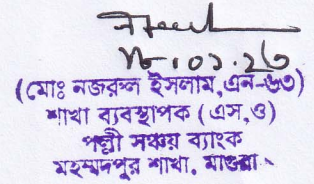 ১৮.০১.২৩
(মোঃ নজরুল ইসলাম,এন-৬৩)
শাখা ব্যবস্থাপক (এস,ও)
পল্লী সঞ্চয় ব্যাংক
মহম্মদপুর শাখা, মাগুরা